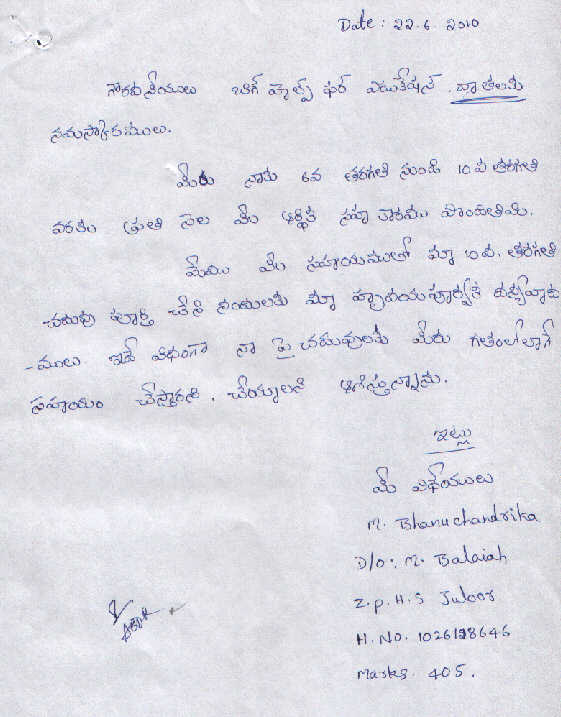 Date : 22.6.2010
గౌరవనీయులు బిగ్ హెల్ప్ ఫర్ ఎడుకేషన్. దాతలకు
నమస్కారములు.
మీరు నాకు 6వ తరగతి నుండి 10వ తరగతి
వరకు ప్రతి నెల మీ ఆర్థిక సహకారము పొందితిమి.
మేము మీ సహాయముతో మా 10వ. తరగతి
చదువు పూర్తి చేసి నందులకు మా హృదయపూర్వక ధన్యవాద
-ములు. ఇదే విధంగా నా పై చదువులకు మీరు గతంలోలాగే
సహాయం చేస్తారని. చేయ్యాలని ఆశిస్తున్నాను.
ఇట్లు
మీ విధేయులు
M. Bhanuchandrika
D/o: M. Balaiah
Z.P.H.S Juloor
H.NO. 1026128646
Marks. 405.